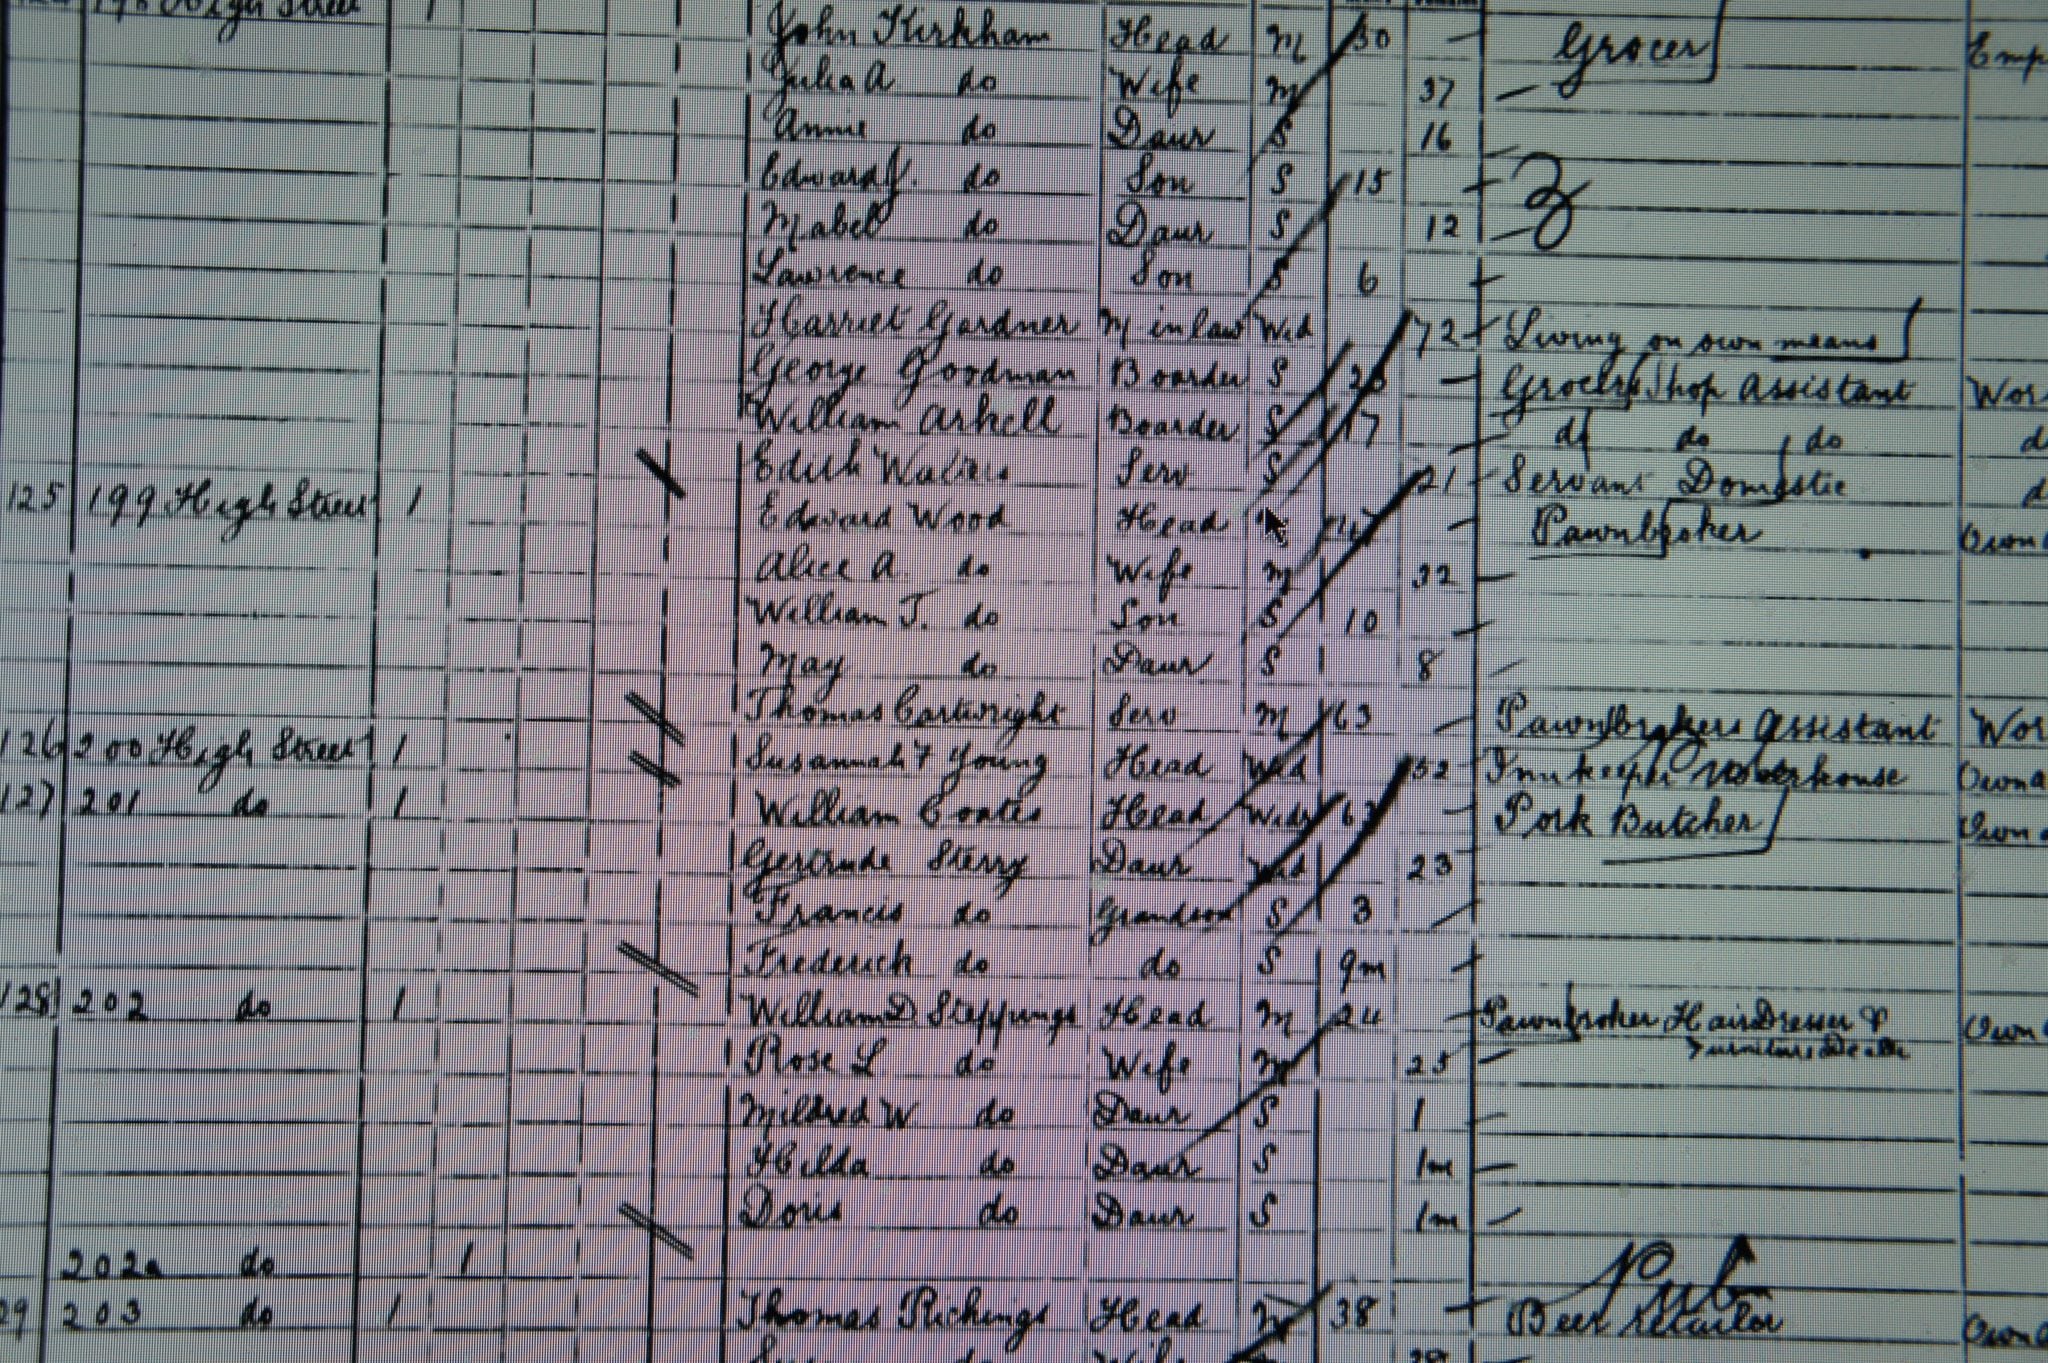 High Street 1
John Kirkham Head M 50 Grocer Emp
Julia A do Wife M 37
Annie do Daur S 16
Edward J. do Son S 15
Mabel do Daur S 12
Lawrence do Son S 6
Harriet Gardner M in law Wid 72 Living on own means
George Goodman Boarder S Grocers Shop Assistant Wor
William Arkell Boarder S 17 do do do d
Edith Walters Serv S 21 Servant Domestic d
125 199 High Street 1 Edward Wood Head Pawnbroker Own
Alice A. do Wife M 32
William J. do Son S 10
May do Daur S 8
Thomas Cartwright Serv M 63 Pawnbrokers Assistant Wor
126 200 High Street 1 Susannah F Young Head Wid 52 Innkeeper Own a
127 201 do 1 William Coates Head Widr Pork Butcher Own
Gertrude Sterry Daur Wid 23
Francis do Grandson S 3
Frederick do do S 9m
128 202 do 1 William D Steppings Head M 24 Pawnbroker Hair Dresser & Own
Furniture Dealer
Rose L do Wife M 25
Mildred W. do Daur S 1
Hilda do Daur S 1m
Doris do Daur S 1m
202a do 1
Pub
29 203 do 1 Thomas Richings Head M 38 Beer Retailer Own
do Wife